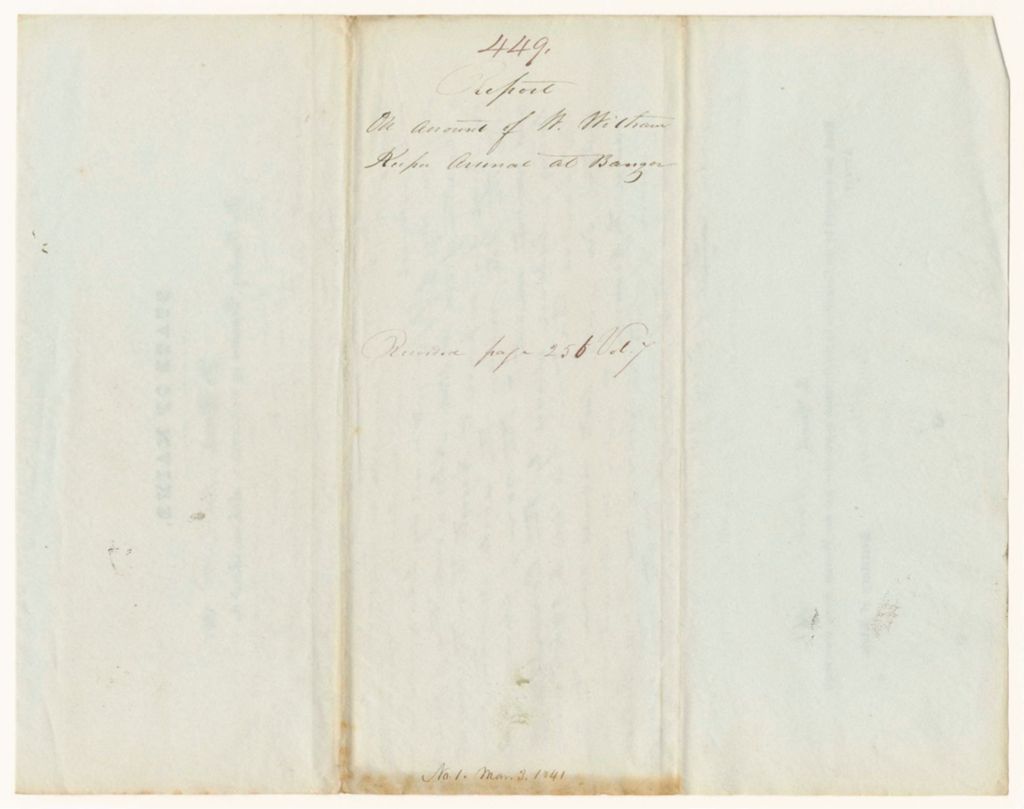 449.
Report
On Account of W. Witham
Keeper Arsenal at Bangor
Recorded page 256 Vol. 7
No 1. Mar. 3. 1841
STATE OF MAINE.